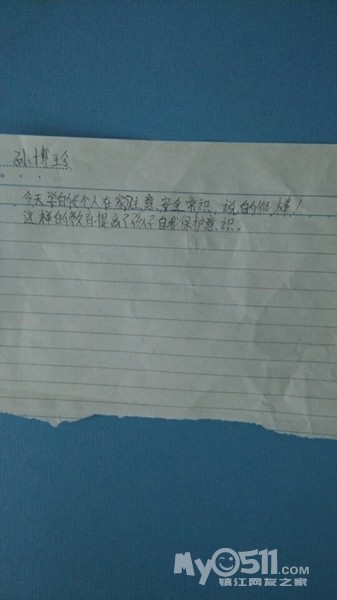 孙博
今天学的一个人在家注意安全常识,说的很棒!
这样的教育提高了孩子自我保护意识。
My0511.com
镇江网友之家